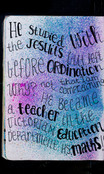 He studied with
the Jesuits but left
before ordination
not
He became
a teacher in the
Victorian education
department as
maths